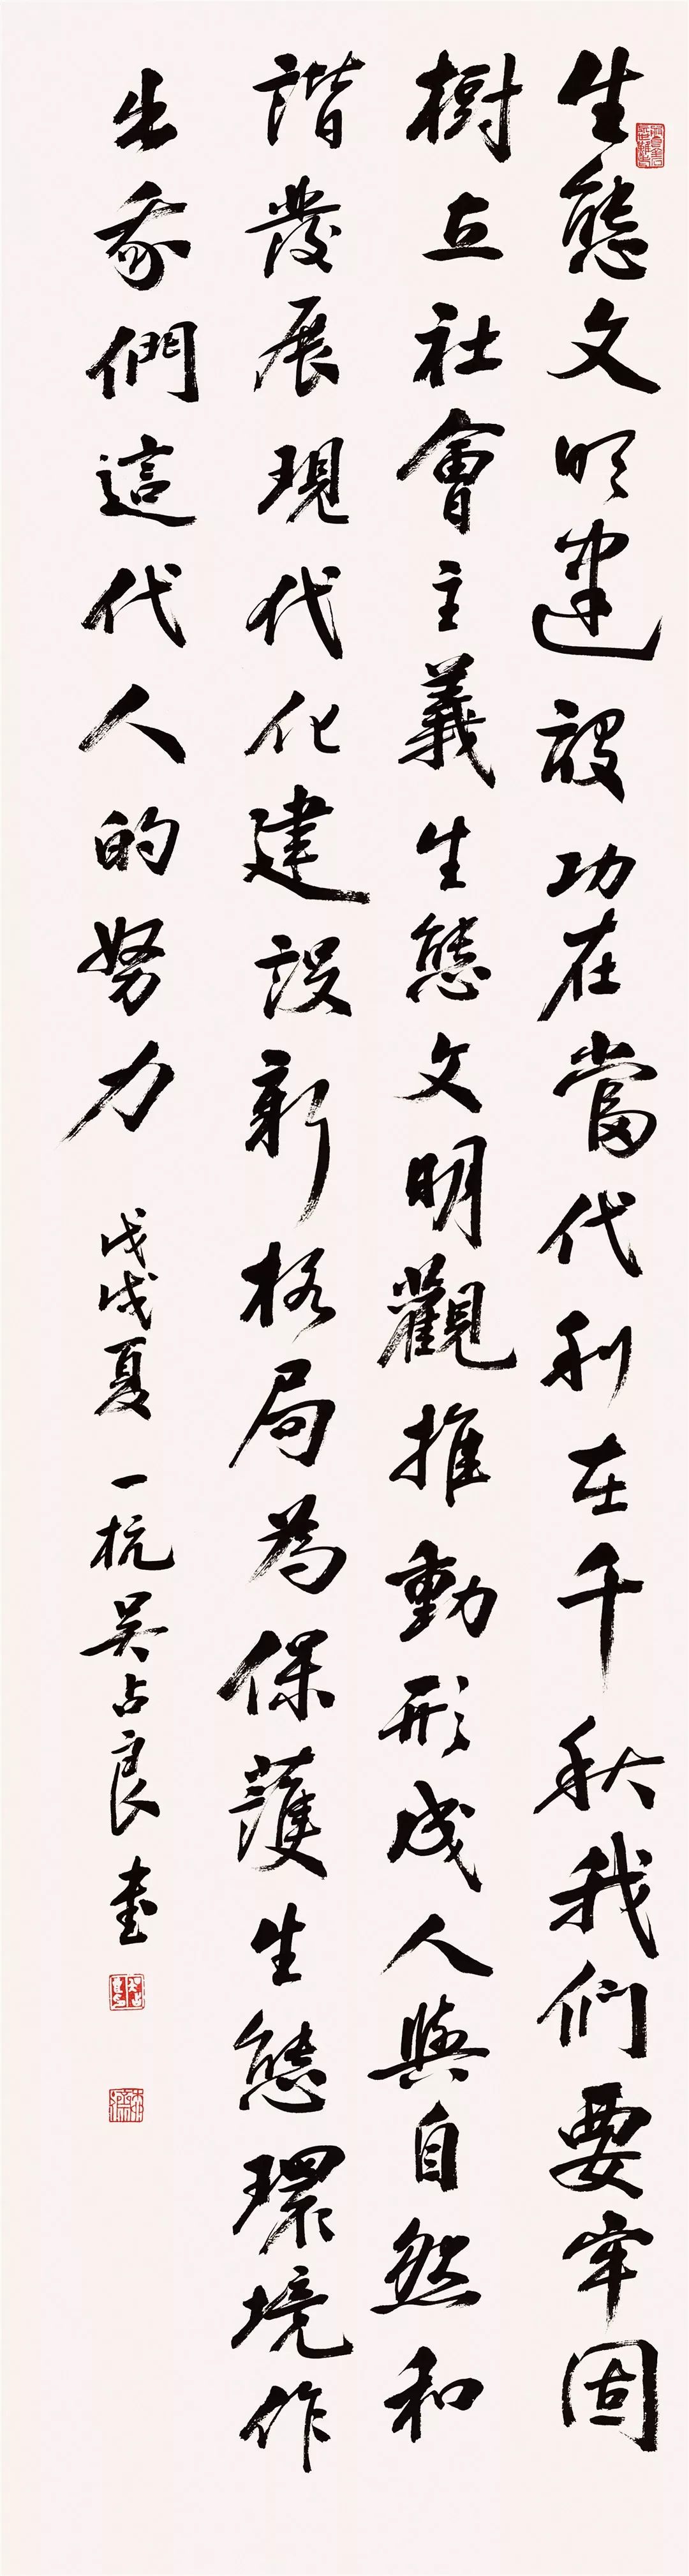 生態文明建設功在當代利在千秋我们要牢固
樹立社會主義生態文明觀推動形成人與自然和
諧發展現代化建設新格局為保護生態環境作
出我們這代人的努力
戊戌夏一杭吴占良書